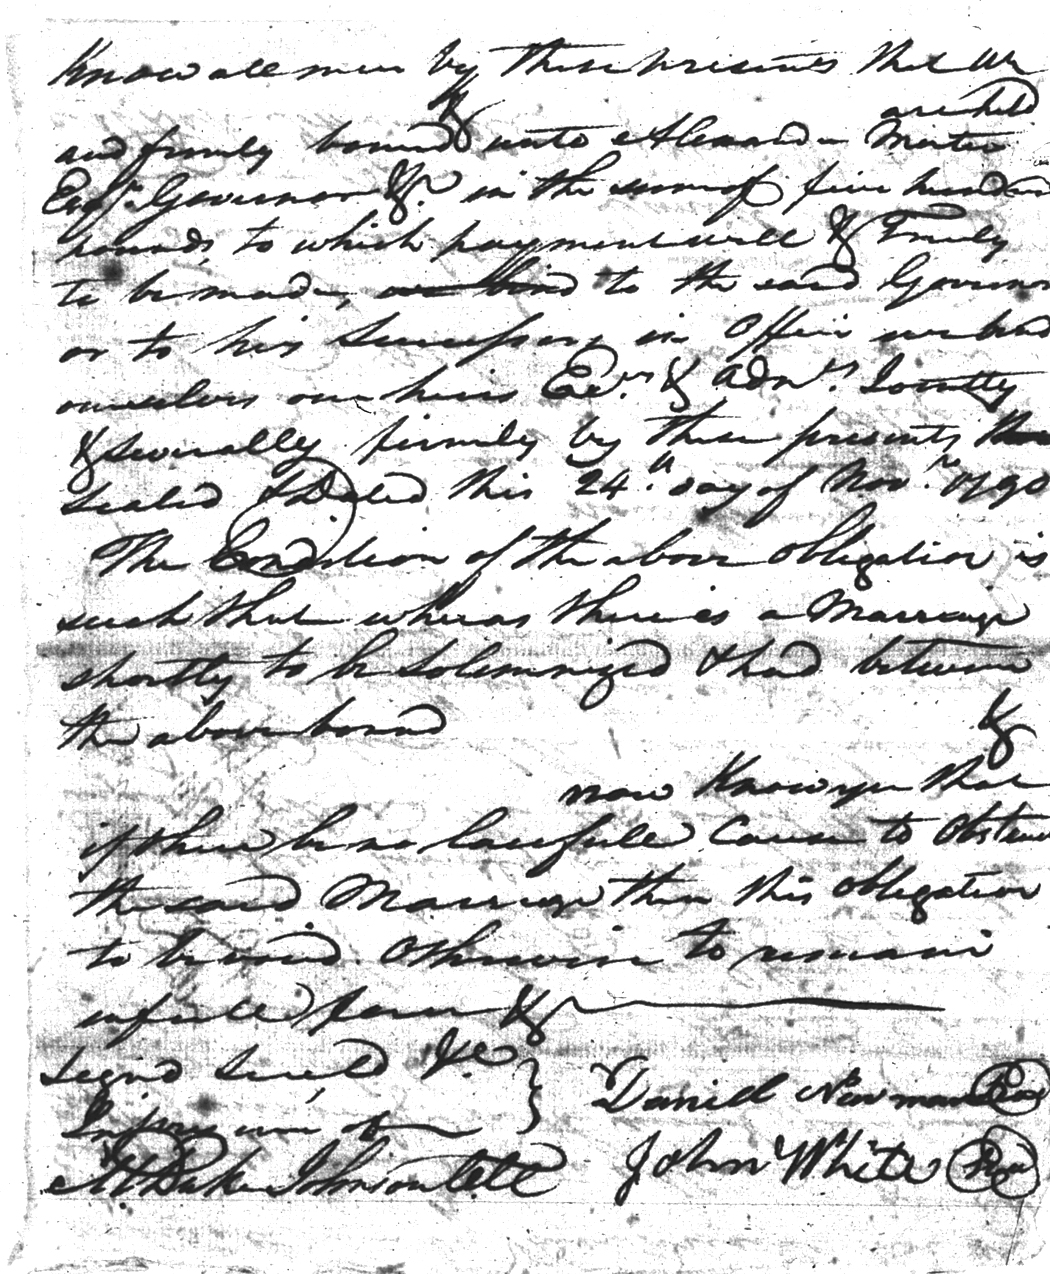 Know all men by these presents that We
& are held
and firmly bound unto Alexander Martin
Esqr. Governor &c. in the sum of five hundred
pounds, to which payment well & Truly
to be made, we bind to the said Governor
or to his Successors, in Office we bind
ourselves our heirs Exrs. & Admrs. Jointly
& severally firmly by these presents
Sealed & Dated this 24th. day of Novr. 1790
The Condition of the above Obligation is
such that whereas there is a Marriage
shortly to be Solemnized & had between
the above bound &
now Know ye that
if there be no lawfull Cause to Obstruct
the said Marriage then this Obligation
to be void Otherwise to remain
in full force &c
Signd Seal'd &c
In presence of
Daniel Newman
John White